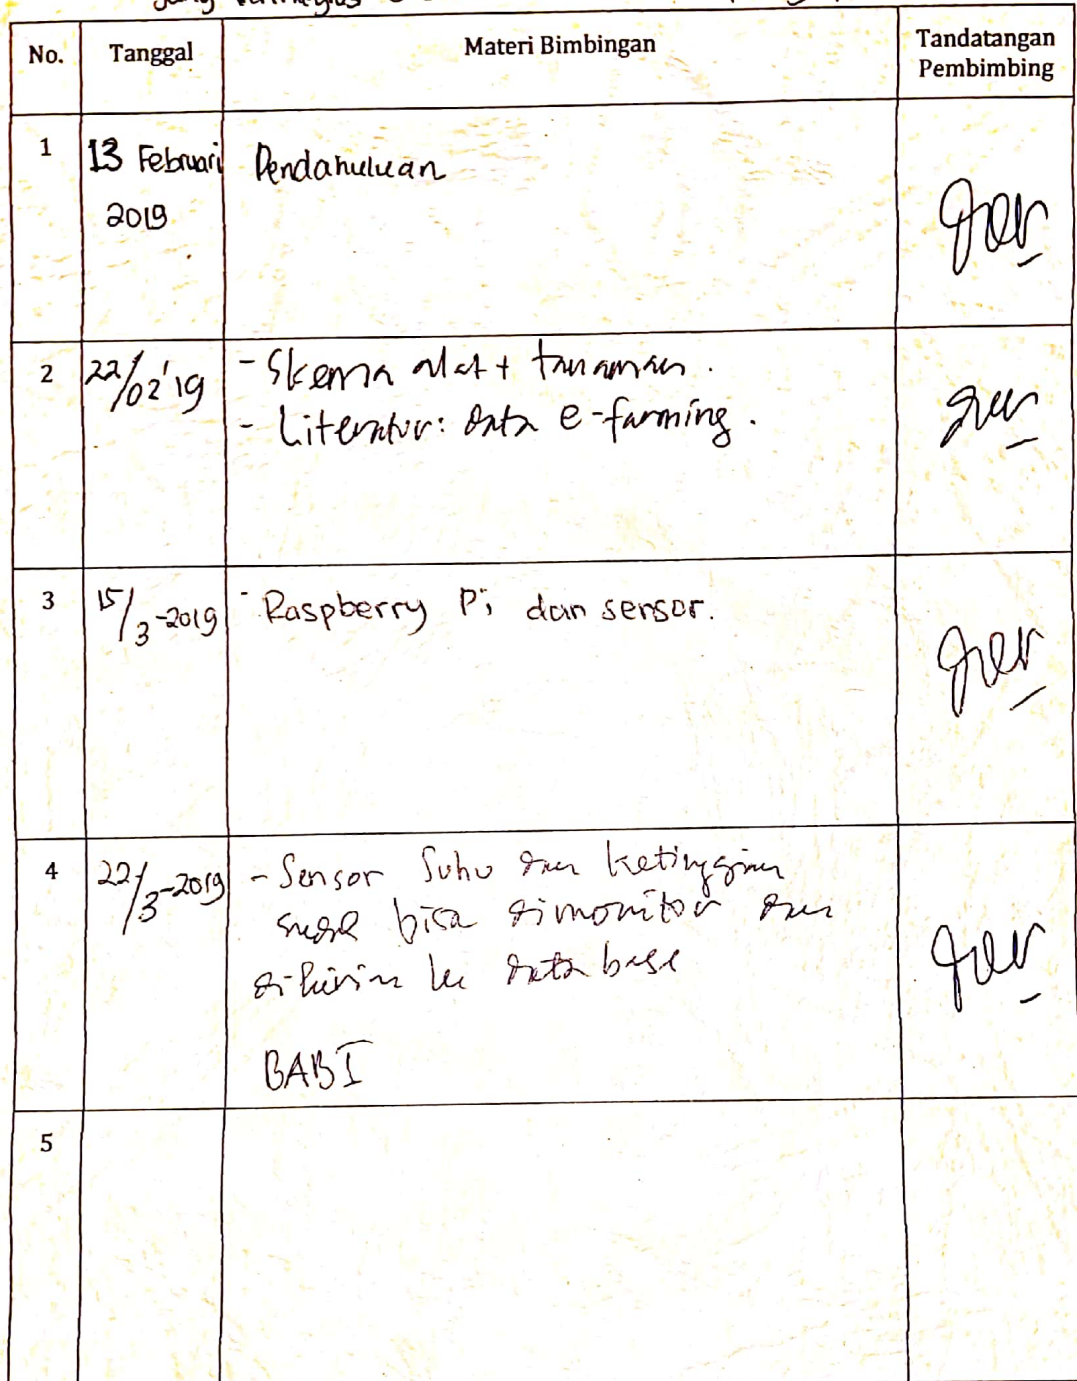 yang
No. Tanggal Materi Bimbingan Tandatangan Pembimbing
1 13 Februari 2019 Pendahuluan
2 22/02'19 - Skema alat + tanaman.
- Literatur: data e-farming.
3 15/3-2019 - Raspberry Pi dan sensor.
4 22/3-2019 - Sensor Suhu dan ketinggian
sudah bisa dimonitor dan
dikirim ke data base
BAB I
5